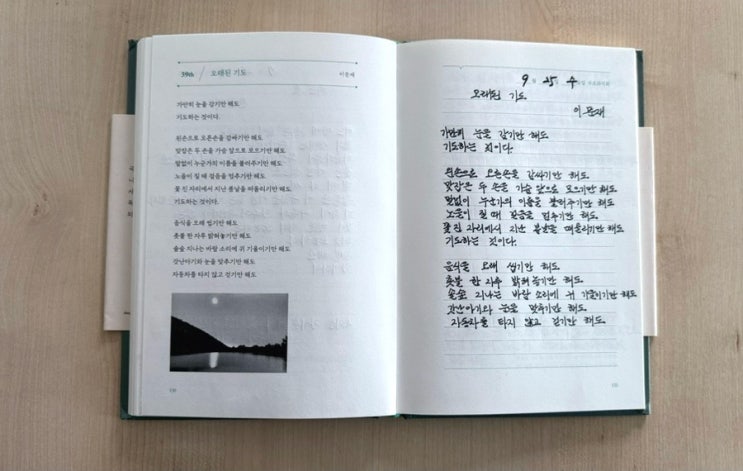 39th / 오래된 기도
이문재
가만히 눈을 감기만 해도
기도하는 것이다.
왼손으로 오른손을 감싸기만 해도
맞잡은 두 손을 가슴 앞으로 모으기만 해도
말없이 누군가의 이름을 불러주기만 해도
노을이 질 때 걸음을 멈추기만 해도
꽃 진 자리에서 지난 봄날을 떠올리기만 해도
기도하는 것이다.
음식을 오래 씹기만 해도
촛불 한 자루 밝혀놓기만 해도
솔숲 지나는 바람 소리에 귀 기울이기만 해도
갓난아기와 눈을 맞추기만 해도
자동차를 타지 않고 걷기만 해도
9월 25 수
오래된 기도
이문재
가만히 눈을 감기만 해도
기도하는 것이다.
왼손으로 오른손을 감싸기만 해도
맞잡은 두 손을 가슴 앞으로 모으기만 해도
말없이 누군가의 이름을 불러주기만 해도
노을이 질 때 걸음을 멈추기만 해도
꽃 진 자리에서 지난 봄날을 떠올리기만 해도
기도하는 것이다.
음식을 오래 씹기만 해도
촛불 한 자루 밝혀 놓기만 해도
솔숲 지나는 바람 소리에 귀 기울이기만 해도
갓난아기와 눈을 맞추기만 해도
자동차를 타지 않고 걷기만 해도